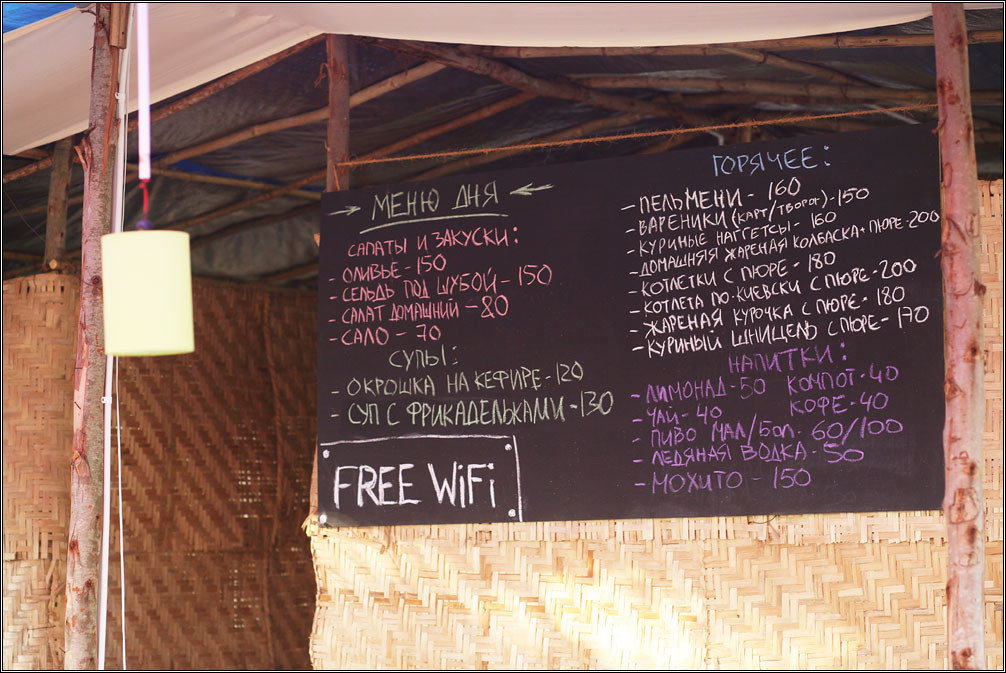 МЕНЮ ДНЯ
САЛАТЫ И ЗАКУСКИ:
- ОЛИВЬЕ - 150
- СЕЛЬДЬ ПОД ШУБОЙ - 150
- САЛАТ ДОМАШНИЙ - 80
- САЛО - 70
СУПЫ:
- ОКРОШКА НА КЕФИРЕ - 120
- СУП С ФРИКАДЕЛЬКАМИ - 130
FREE WiFi
ГОРЯЧЕЕ:
- ПЕЛЬМЕНИ - 160
- ВАРЕНИКИ (КАРТ/ТВОРОГ) - 150
- КУРИНЫЕ НАГГЕТСЫ - 160
- ДОМАШНЯЯ ЖАРЕНАЯ КОЛБАСКА + ПЮРЕ - 200
- КОТЛЕТКИ С ПЮРЕ - 180
- КОТЛЕТА ПО-КИЕВСКИ С ПЮРЕ - 200
- ЖАРЕНАЯ КУРОЧКА С ПЮРЕ - 180
- КУРИНЫЙ ШНИЦЕЛЬ С ПЮРЕ - 170
НАПИТКИ:
- ЛИМОНАД - 50 КОМПОТ - 40
- ЧАЙ - 40 КОФЕ - 40
- ПИВО МАЛ/БОЛ - 60/100
- ЛЕДЯНАЯ ВОДКА - 50
- МОХИТО - 150